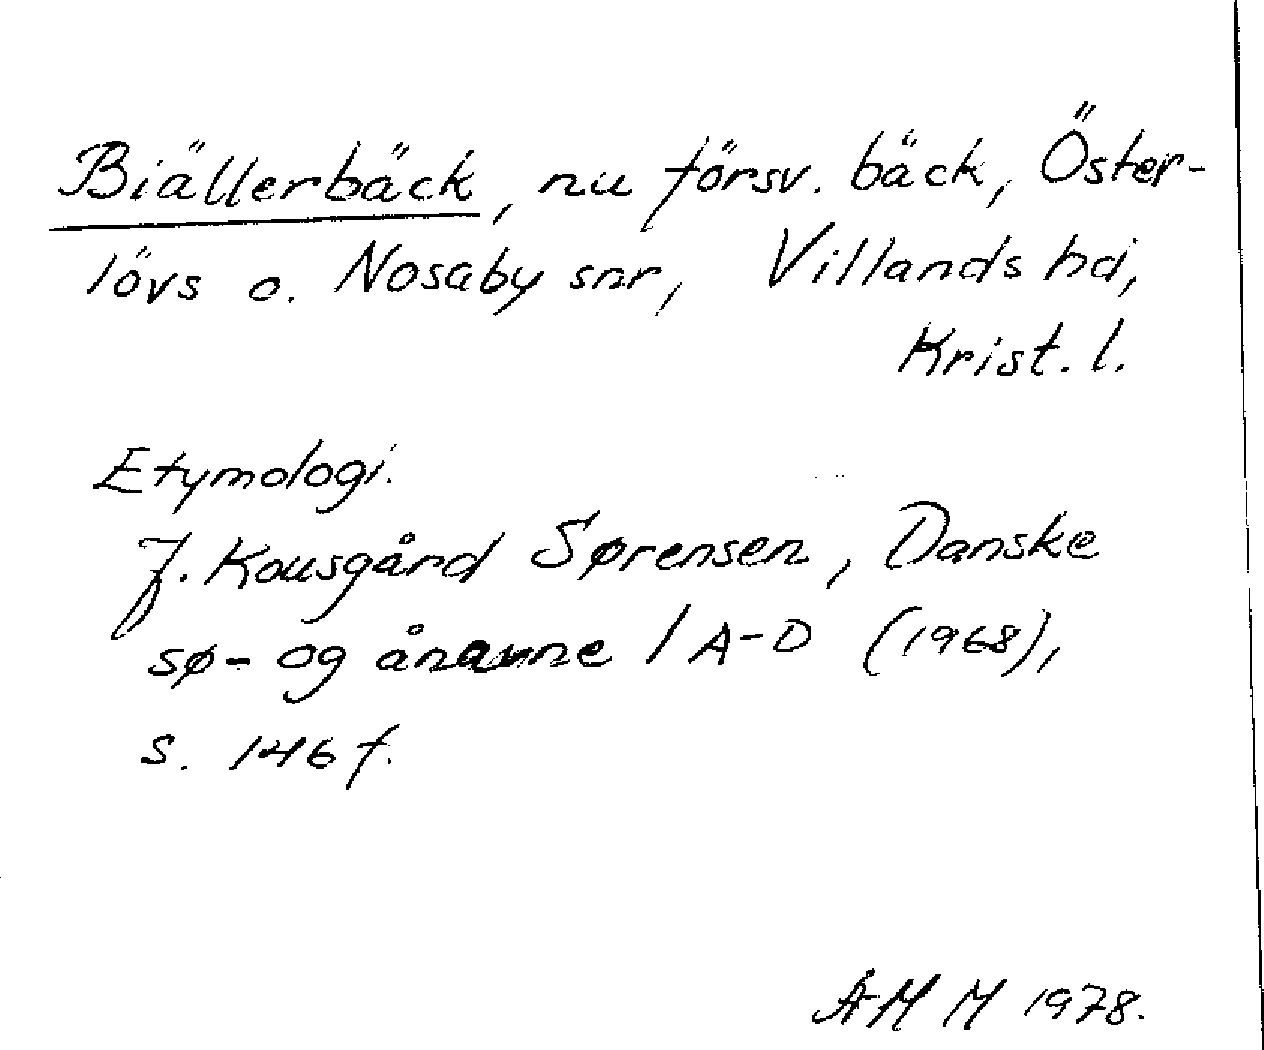 Biällerbäck, nu försv. bäck, Öster-
lövs o. Nosaby snr, Villands hd,
Krist. l.
Etymologi.
J. Kousgård Sørensen, Danske
sø- og ånavne 1 A-D (1968),
s. 146 f.
ÅHM 1978.